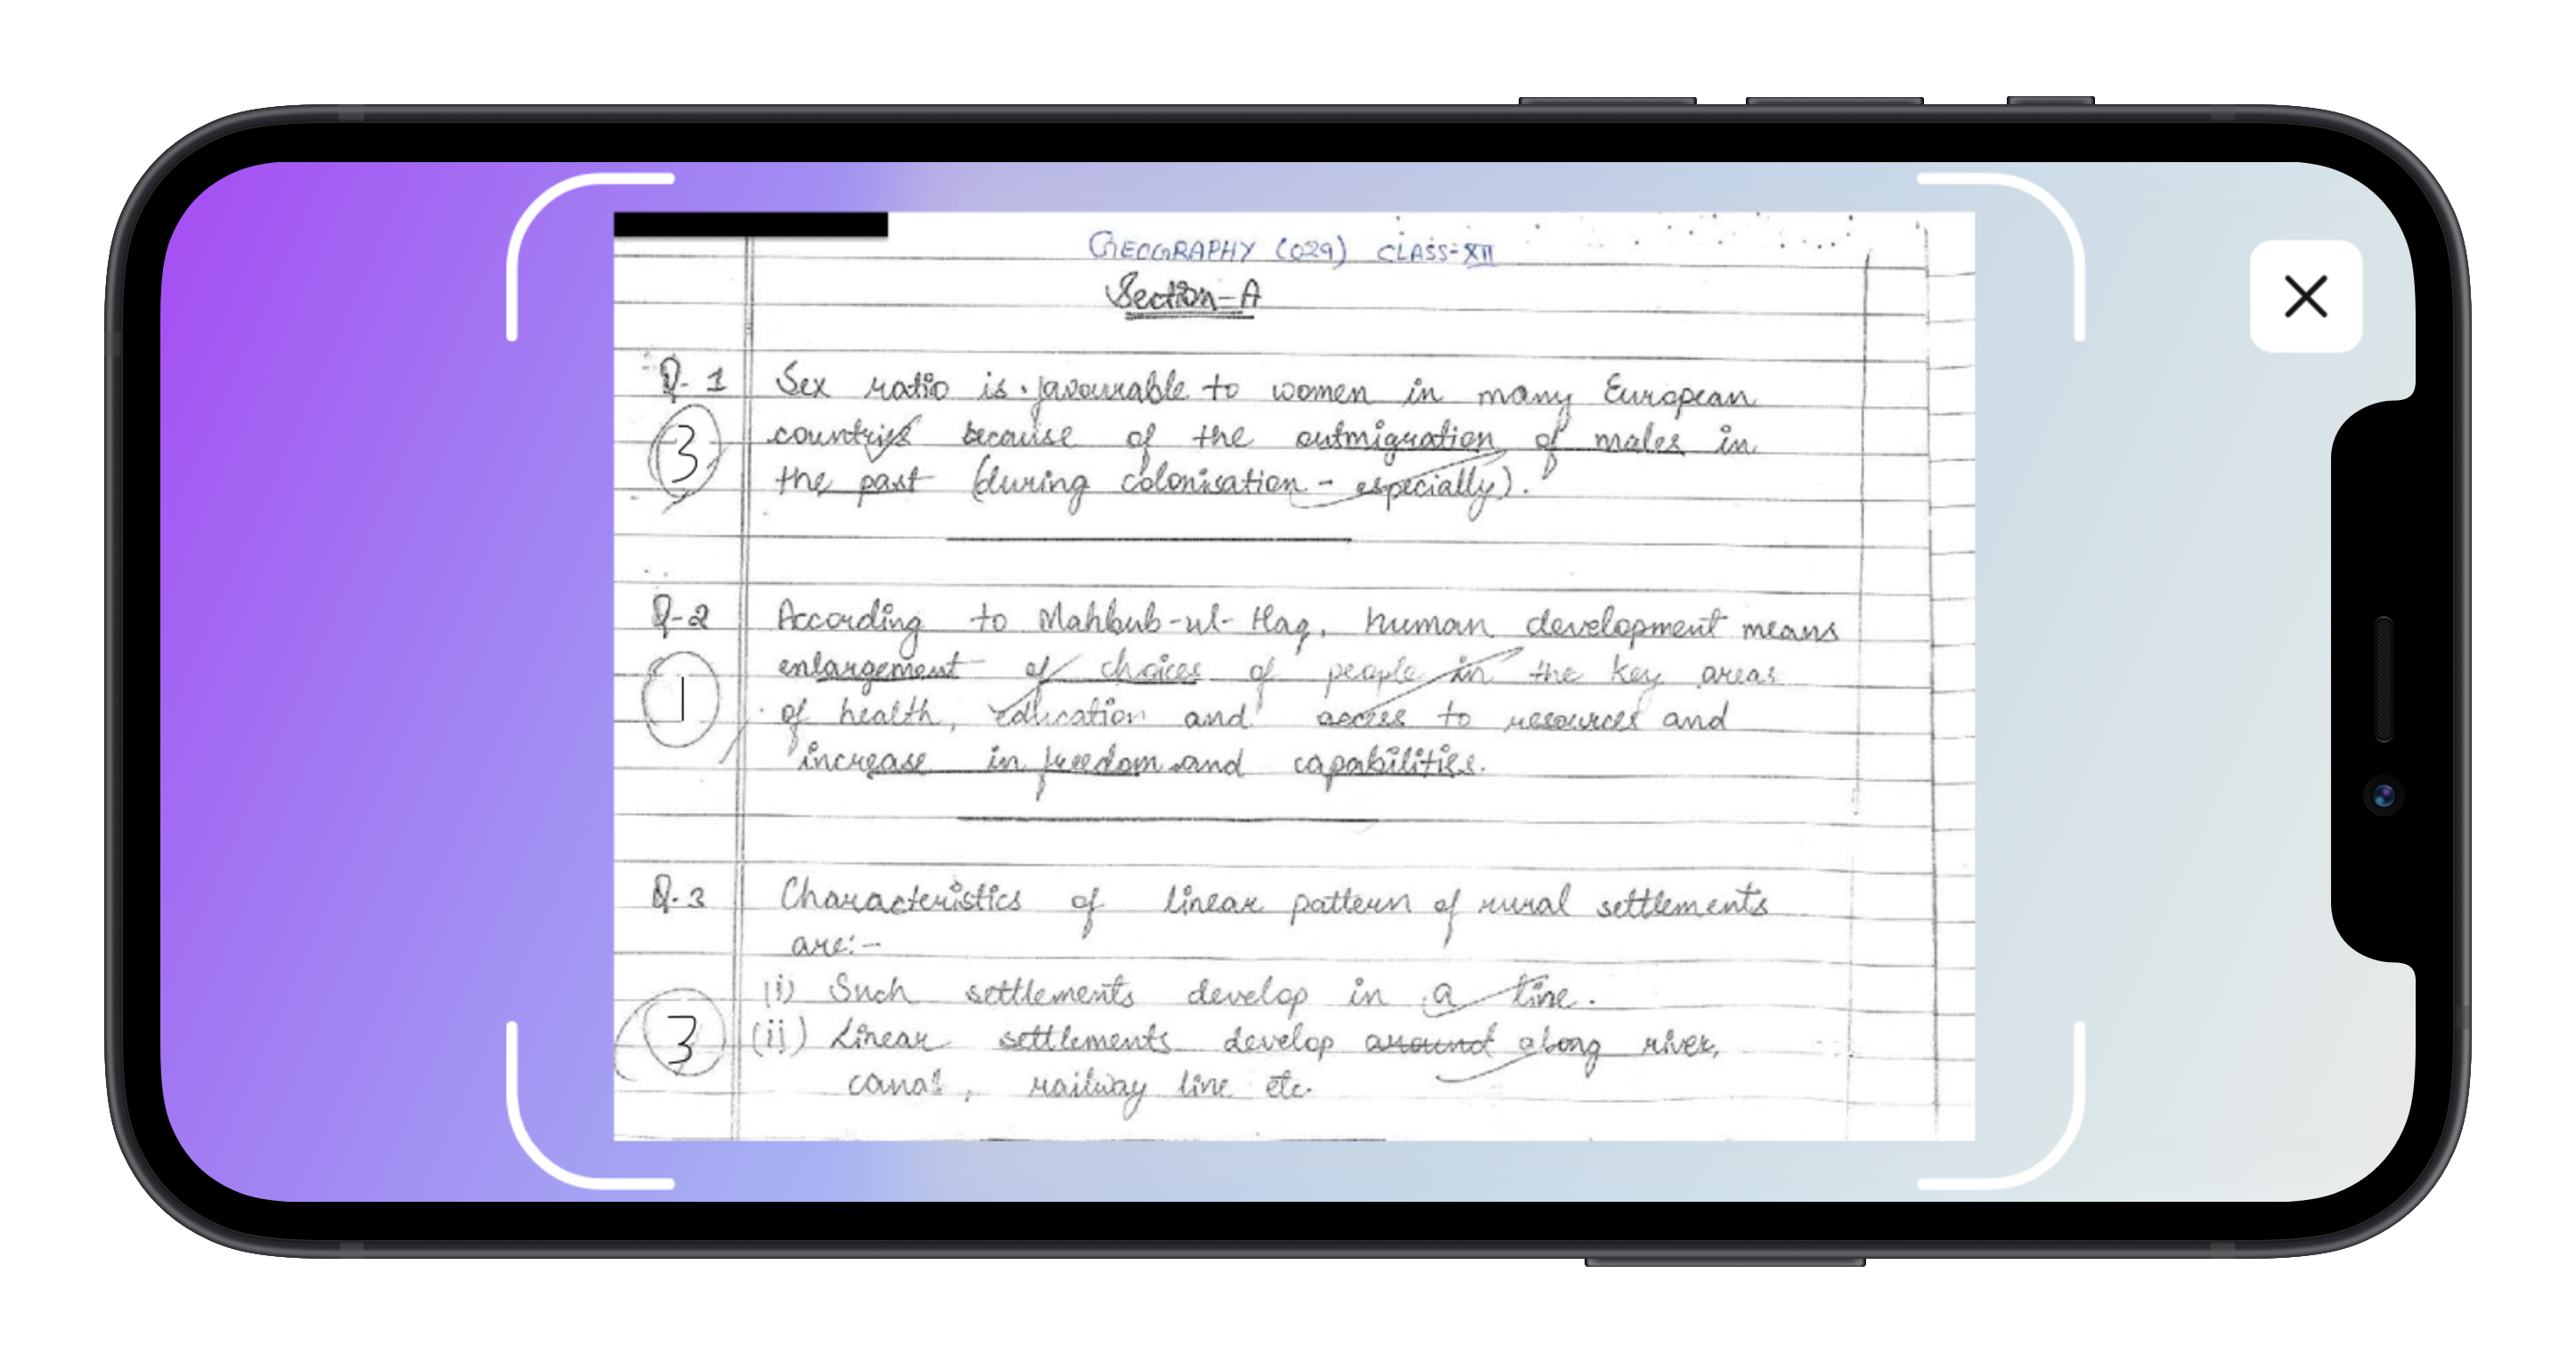 GEOGRAPHY (029) CLASS-XII
Section-A
Q-1 Sex ratio is favourable to women in many European
3 countries because of the outmigration of males in
the past (during colonisation - especially).
Q-2 According to Mahbub-ul-Haq, human development means
enlargement of choices of people in the key areas
1 of health, education and access to resources and
increase in freedom and capabilities.
Q-3 Characteristics of linear pattern of rural settlements
are:-
(i) Such settlements develop in a line.
3 (ii) Linear settlements develop around along river,
canal, railway line etc.